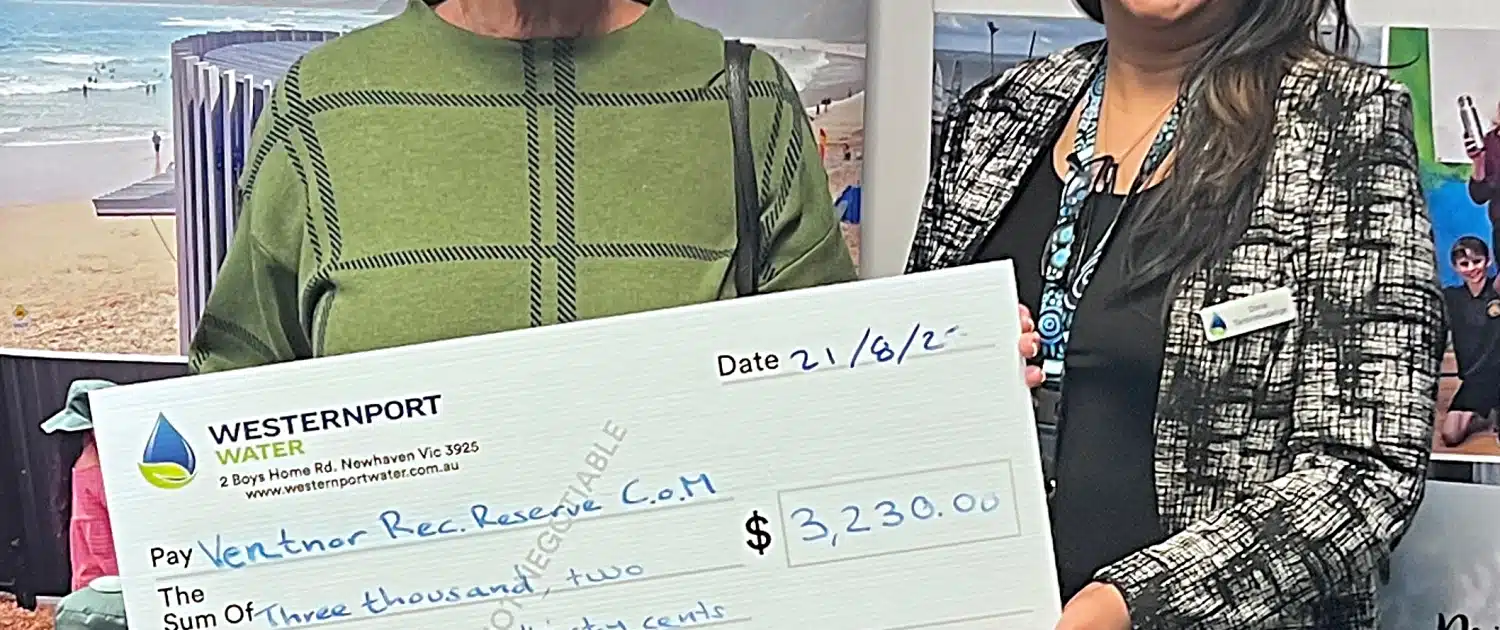 Date 21/8/2
WESTERNPORT
WATER
2 Boys Home Rd, Newhaven Vic 3925
www.westernportwater.com.au
Pay Ventnor Rec. Reserve C.o.M
$ 3,230.00
The
Sum Of Three thousand, two
cents
NEGOTIABLE